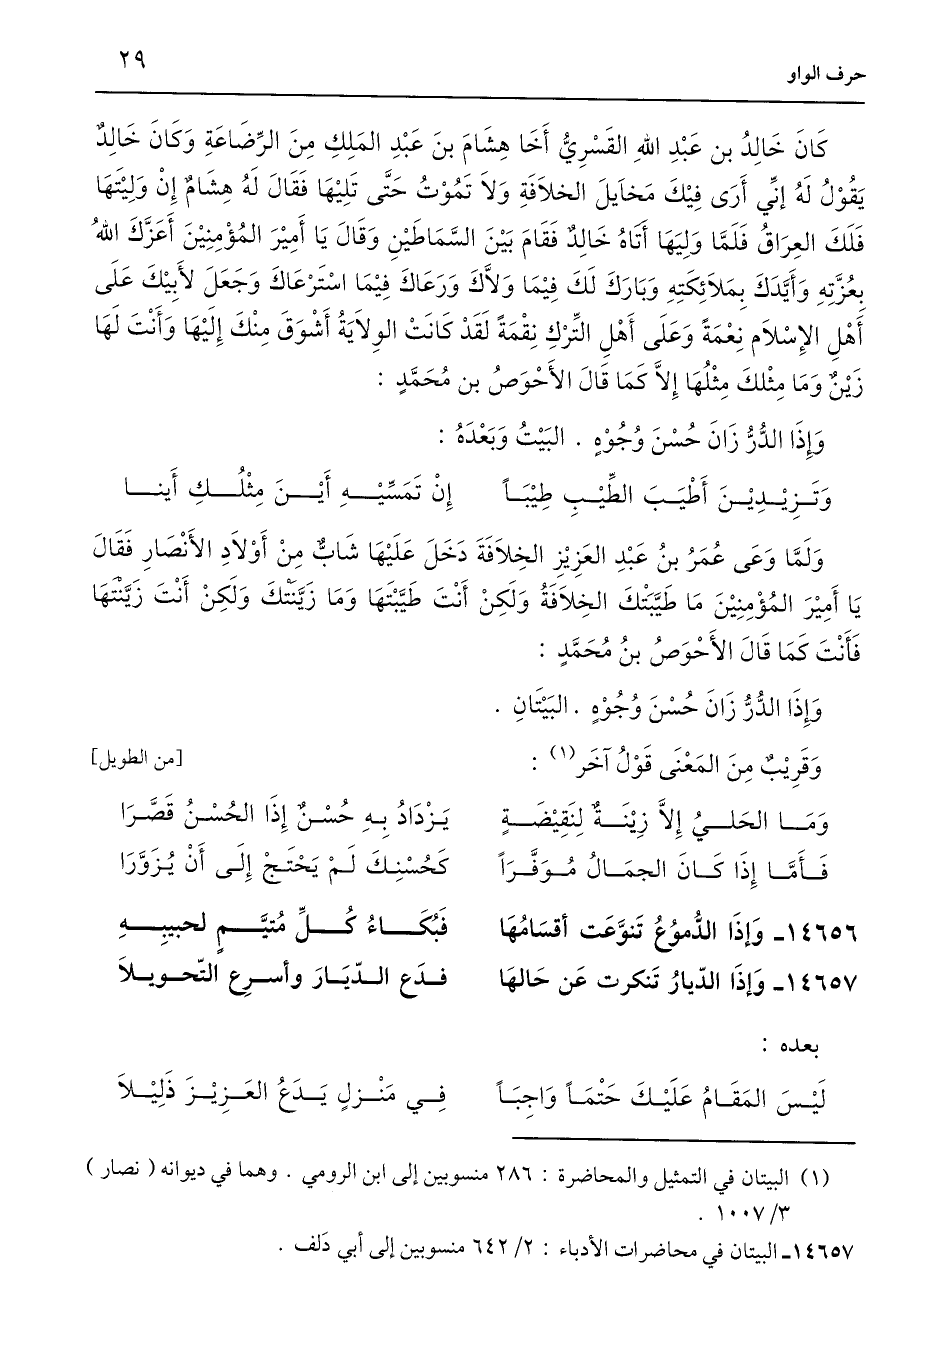 حرف الواو ٢٩
كَانَ خَالِدُ بن عَبْدِ اللهِ القَسْرِيُّ أَخَا هِشَامَ بنَ عَبْدِ المَلِكِ مِنَ الرِّضَاعَةِ وَكَانَ خَالِدٌ
يَقُوْلُ لَهُ إِنِّي أَرَى فِيْكَ مَخَايِلَ الخلَافَةِ وَلَا تَمُوْتُ حَتَّى تَلِيْهَا فَقَالَ لَهُ هِشَامُ إِنْ وَلِيْتَهَا
فَلَكَ العِرَاقُ فَلَمَّا وَلِيَهَا أَتَاهُ خَالِدٌ فَقَامَ بَيْنَ السَّمَاطَيْنِ وَقَالَ يَا أَمِيْرَ المُؤْمِنِيْنَ أَعَزَّكَ اللهُ
بِعُزَّتِهِ وَأَيَّدَكَ بِمَلَائِكَتِهِ وَبَارَكَ لَكَ فِيْمَا وَلَّاكَ وَرَعَاكَ فِيْمَا اسْتَرْعَاكَ وَجَعَلَ لأَبِيْكَ عَلَى
أَهْلِ الإِسْلَامِ نِعْمَةً وَعَلَى أَهْلِ التِّرْكِ نِقْمَةً لَقَدْ كَانَتْ الوِلَايَةُ أَشْوَقَ مِنْكَ إِلَيْهَا وَأَنْتَ لَهَا
زَيْنٌ وَمَا مِثْلكَ مِثْلُهَا إِلاَّ كَمَا قَالَ الأَحْوَصُ بن مُحَمَّدٍ :
وَإِذَا الدُّرُّ زَانَ حُسْنَ وُجُوْهٍ . البَيْتُ وَبَعْدَهُ :
وَتَـزِيْـدِيْـنَ أَطْيَـبَ الطِّيْـبِ طِيْبَـاً إِنْ تَمَسِّيْـهِ أَيْـنَ مِثْلُـكِ أَينـا
وَلَمَّا وَعَى عُمَرُ بنُ عَبْدِ العَزِيْزِ الخلَافَةَ دَخَلَ عَلَيْهَا شَابٌّ مِنْ أَوْلَادِ الأَنْصَارِ فَقَالَ
يَا أَمِيْرَ المُؤْمِنِيْنَ مَا طَيَّبَتْكَ الخلَافَةُ وَلَكِنْ أَنْتَ طَيَّبْتَهَا وَمَا زَيَّنَتْكَ وَلَكِنْ أَنْتَ زَيَّنْتَهَا
فَأَنْتَ كَمَا قَالَ الأَحْوَصُ بنُ مُحَمَّدٍ :
وَإِذَا الدُّرُّ زَانَ حُسْنَ وُجُوْهٍ . البَيْتَانِ .
وَقَرِيْبٌ مِنَ المَعْنَى قَوْلُ آخَر(١) : [من الطويل]
وَمَـا الحَلـيُ إِلاَّ زِيْنَـةٌ لِنَقِيْضَـةٍ يَـزْدَادُ بِـهِ حُسْـنٌ إِذَا الحُسْـنُ قَصَّـرَا
فَـأَمَّـا إِذَا كَـانَ الجمَـالُ مُـوَفَّـرَاً كَحُسْنِـكَ لَـمْ يَحْتَـجْ إِلَـى أَنْ يُـزَوَّرَا
١٤٦٥٦ـ وَإِذَا الدُّموُعُ تَنوَّعَت أقسَامُهَا فَبُكَـاءُ كُـلِّ مُتيَّـمٍ لحبيبِـهِ
١٤٦٥٧ـ وَإِذَا الدّيارُ تَنكرت عَن حَالهَا فـدَع الـدّيَـارَ وأسـرِع التّحـويـلاَ
بعده :
لَيْـسَ المَقَـامُ عَلَيْـكَ حَتْمَـاً وَاجِبَـاً فِـي مَنْـزِلٍ يَـدَعُ العَـزِيْـزَ ذَلِيْـلاَ
(١) البيتان في التمثيل والمحاضرة : ٢٨٦ منسوبين إلى ابن الرومي . وهما في ديوانه ( نصار )
٣/ ١٠٠٧ .
١٤٦٥٧ـ البيتان في محاضرات الأدباء : ٢/ ٦٤٢ منسوبين إلى أبي دَلف .